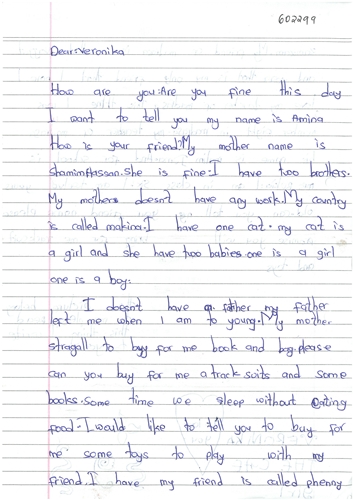 602299
Dear:Veronika
How are you:Are you fine this day
I want to tell you my name is Amina
How is your friend?My mother name is
ShaminHassan.She is fine.I have two brothers.
My mothers doesnt have any work.My country
is called makina.I have one cat. my cat is
a girl and she have two babies one is a girl
one is a boy.
I doesnt have a father my father
left me when I am to young.My mother
stragall to buy for me book and bag.please
can you buy for me a track suits and some
books.Some time we sleep without eating
food.I would like to tell you to buy for
me some toys to play with my
friend.I have my friend is called phenny